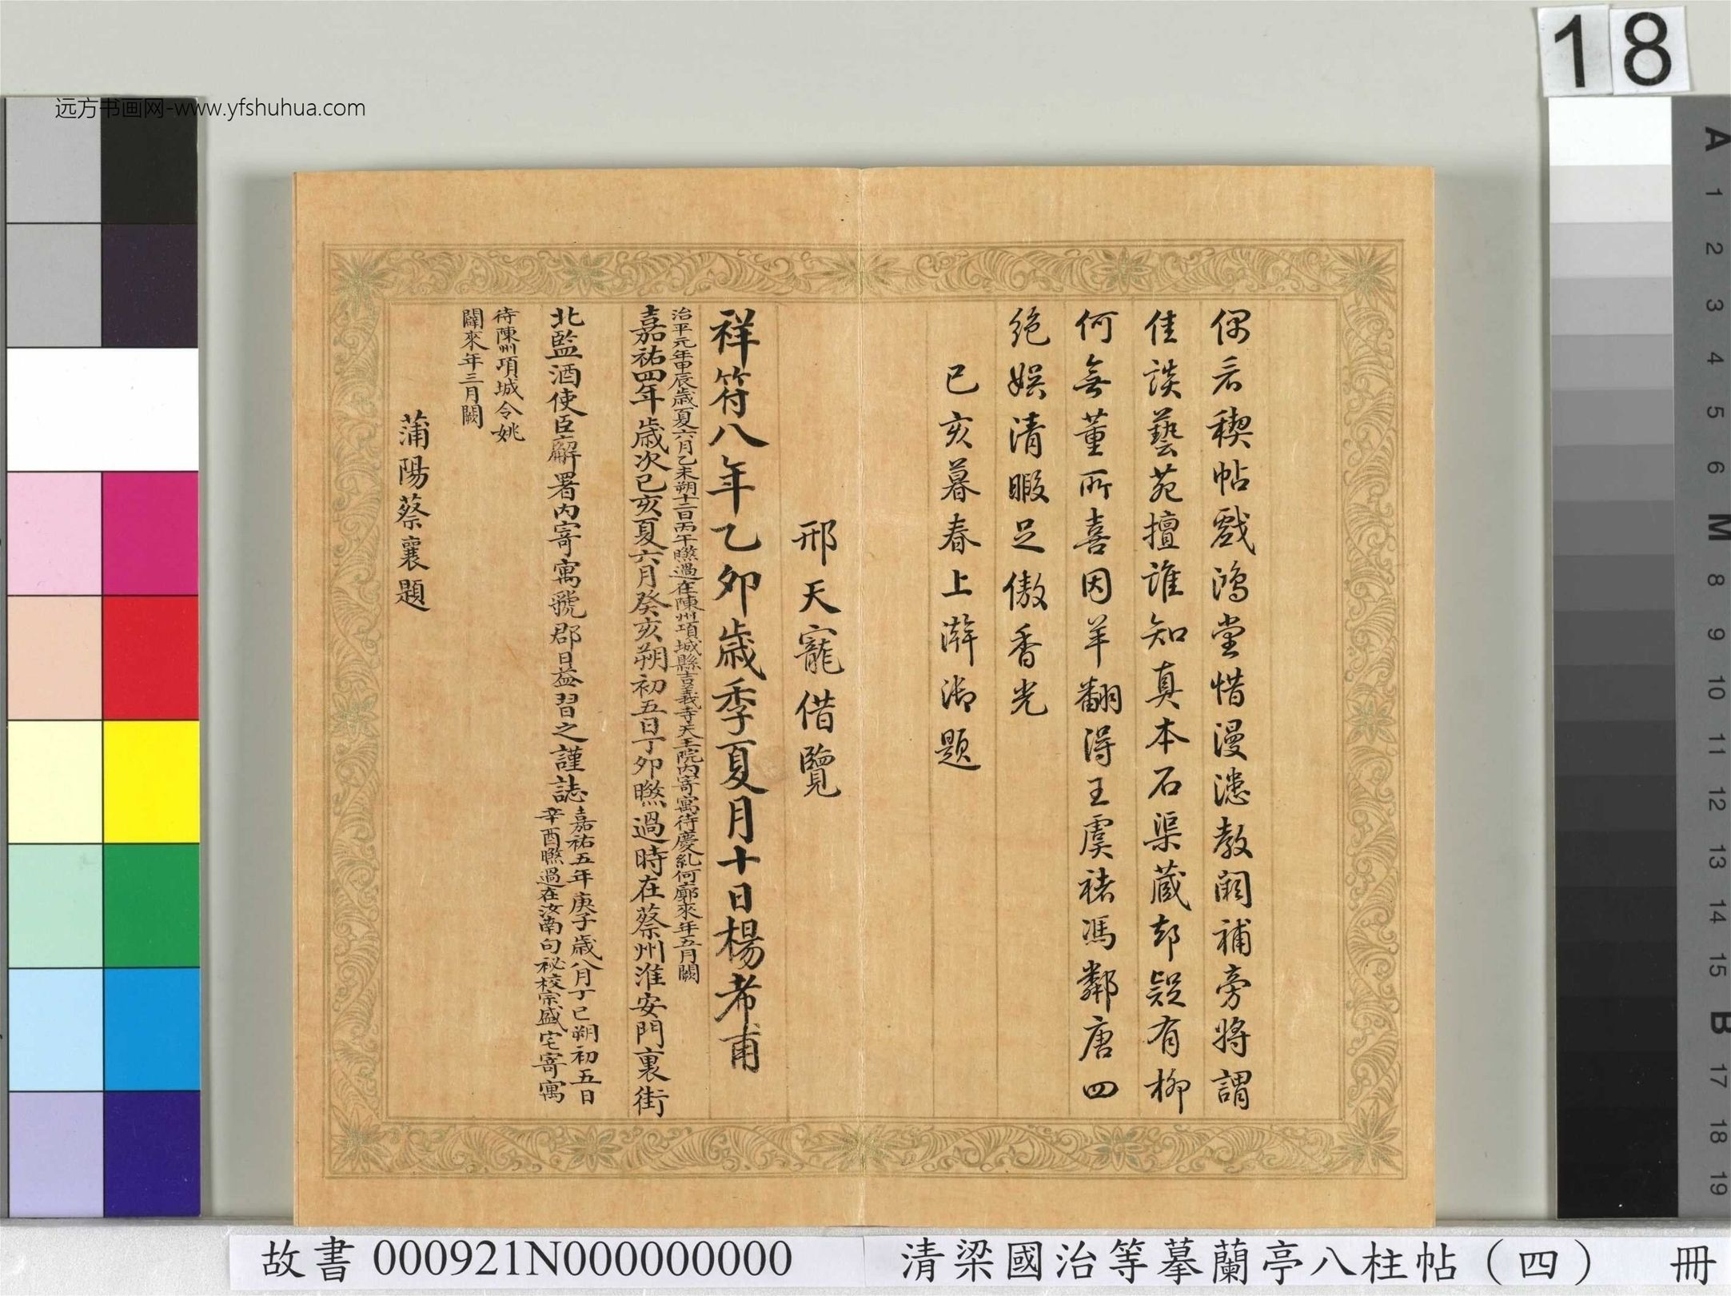 远方书画网-www.yfshuhua.com
18
偶看禊帖戲鴻堂惜漫漶教闕補旁將謂
佳談藝苑擅誰知真本石渠藏却疑有柳
何無董所喜因羊翻得王虞褚馮鄰唐四
絶娛清暇足傲香光
己亥暮春上澣御題
邢天寵借覽
祥符八年乙夘歲季夏月十日楊希甫
治平元年甲辰歲夏六月乙未朔十二日丙午㬠過在陳州項城縣吉義寺天王院内寄寓待慶糺何廓來年五月闕
嘉祐四年歲次己亥夏六月癸亥朔初五日丁夘㬠過時在蔡州淮安門裏街
北監酒使臣廨署内寄寓虢郡日益習之謹誌
嘉祐五年庚子歲八月丁巳朔初五日
辛酉㬠過在汝南句祕校宗盛宅寄寓
待陳州項城令姚
闢來年三月闕
蒲陽蔡襄題
A
1
2
3
4
5
6
M
8
9
10
11
12
13
14
15
B
17
18
19
故書 000921N000000000
清梁國治等摹蘭亭八柱帖（四） 冊